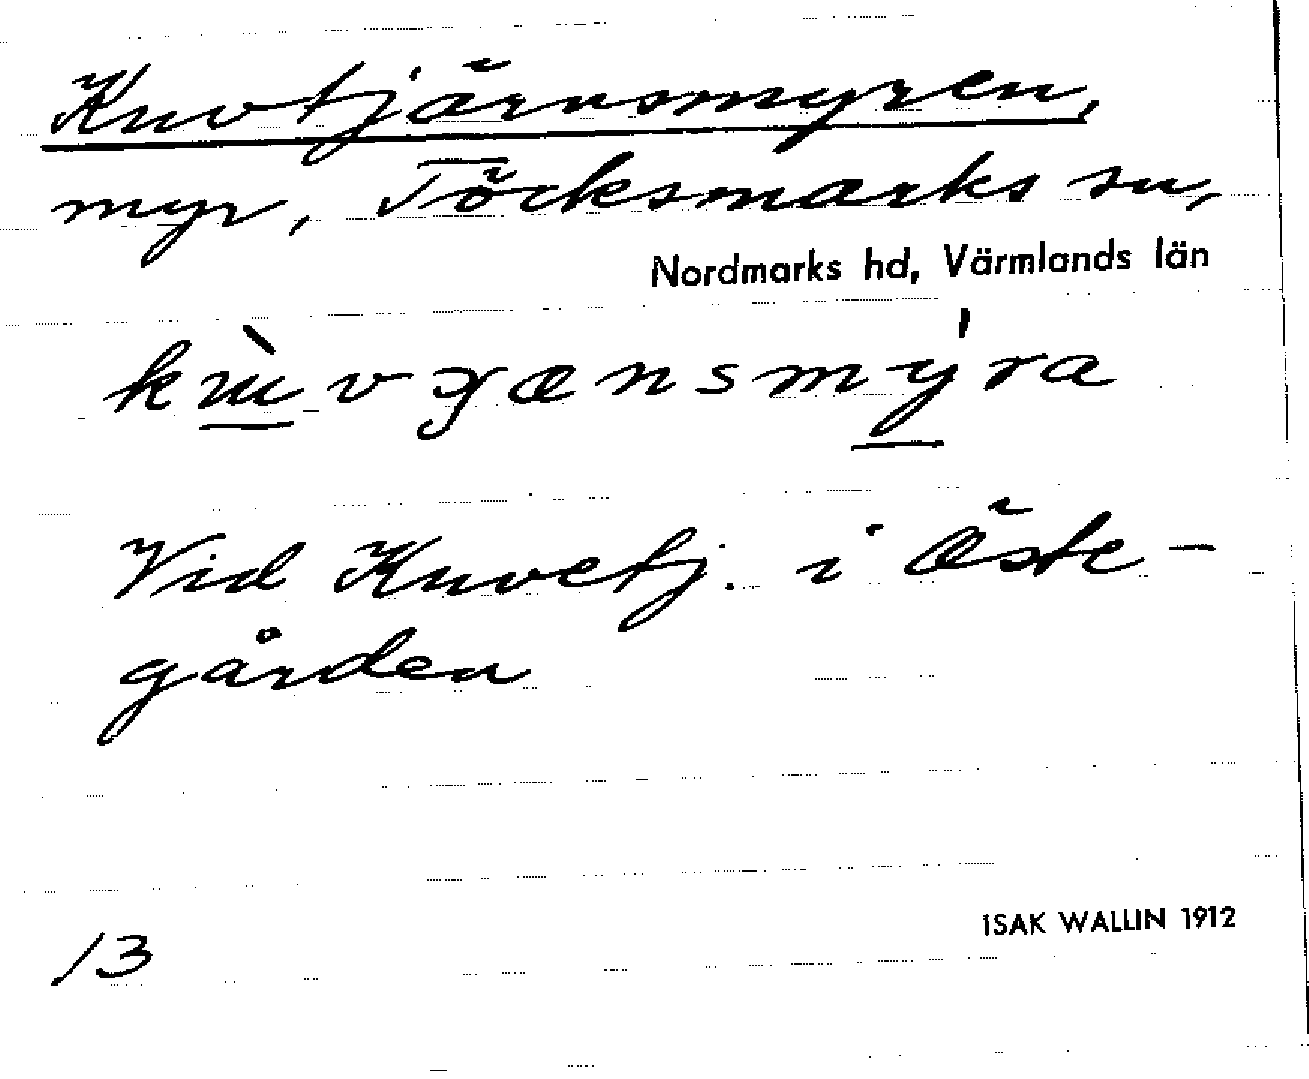 Knvtjärnsmyren,
myr, Töcksmarks sn,
Nordmarks hd, Värmlands län
Vid Knvetj. i Öste-
gården
13
ISAK WALLIN 1912